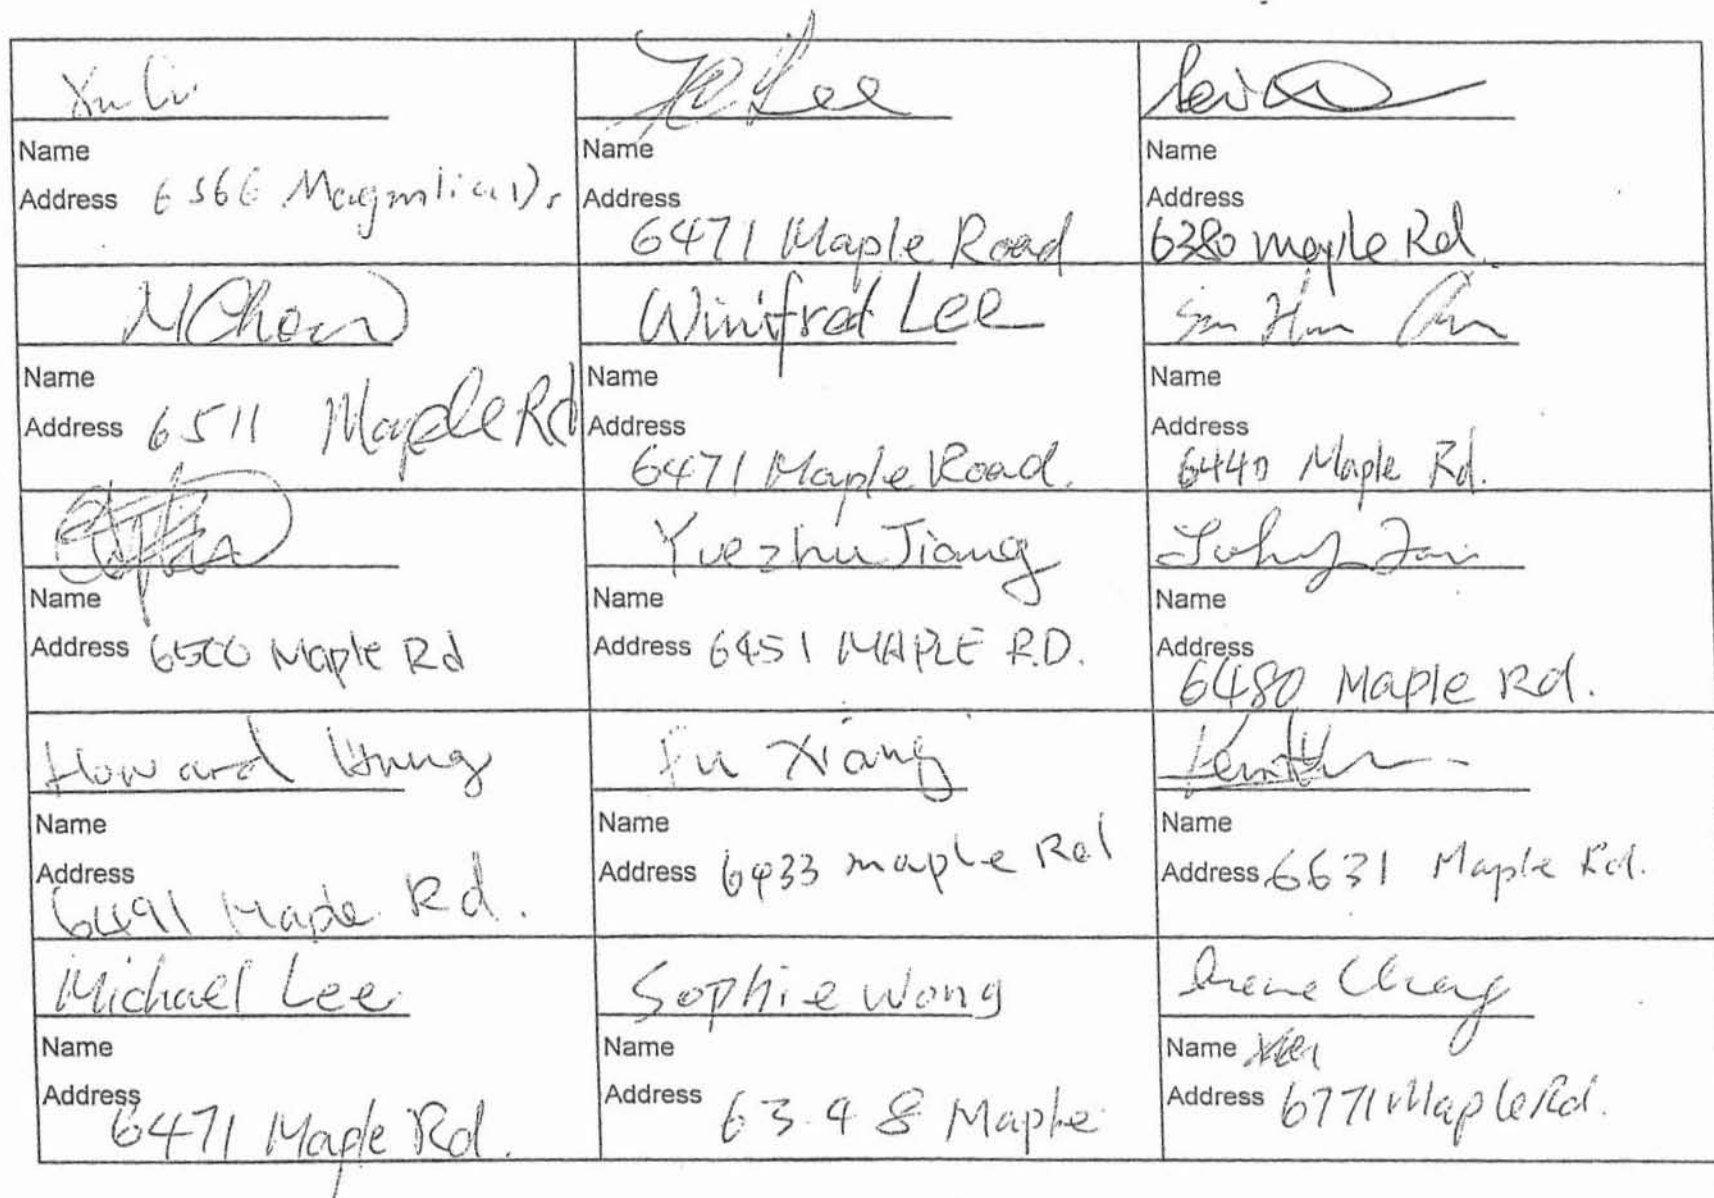 Xu Li
Name
Address 6566 Magnolia Dr
Lee
Name
Address
6471 Maple Road
Name
Address
6380 maple Rd.
Name
Address 6511 Maple Rd
Winifred Lee
Name
Address
6471 Maple Road.
Name
Address
6440 Maple Rd.
Name
Address 6500 Maple Rd
Yuezhu Jiang
Name
Address 6451 MAPLE RD.
Name
Address
6480 Maple Rd.
Howard Hung
Name
Address
6491 Maple Rd.
Fu Xiang
Name
Address 6433 maple Rd
Name
Address 6631 Maple Rd.
Michael Lee
Name
Address
6471 Maple Rd.
Sophie Wong
Name
Address 6348 Maple
Name
Address 6771 Maple Rd.